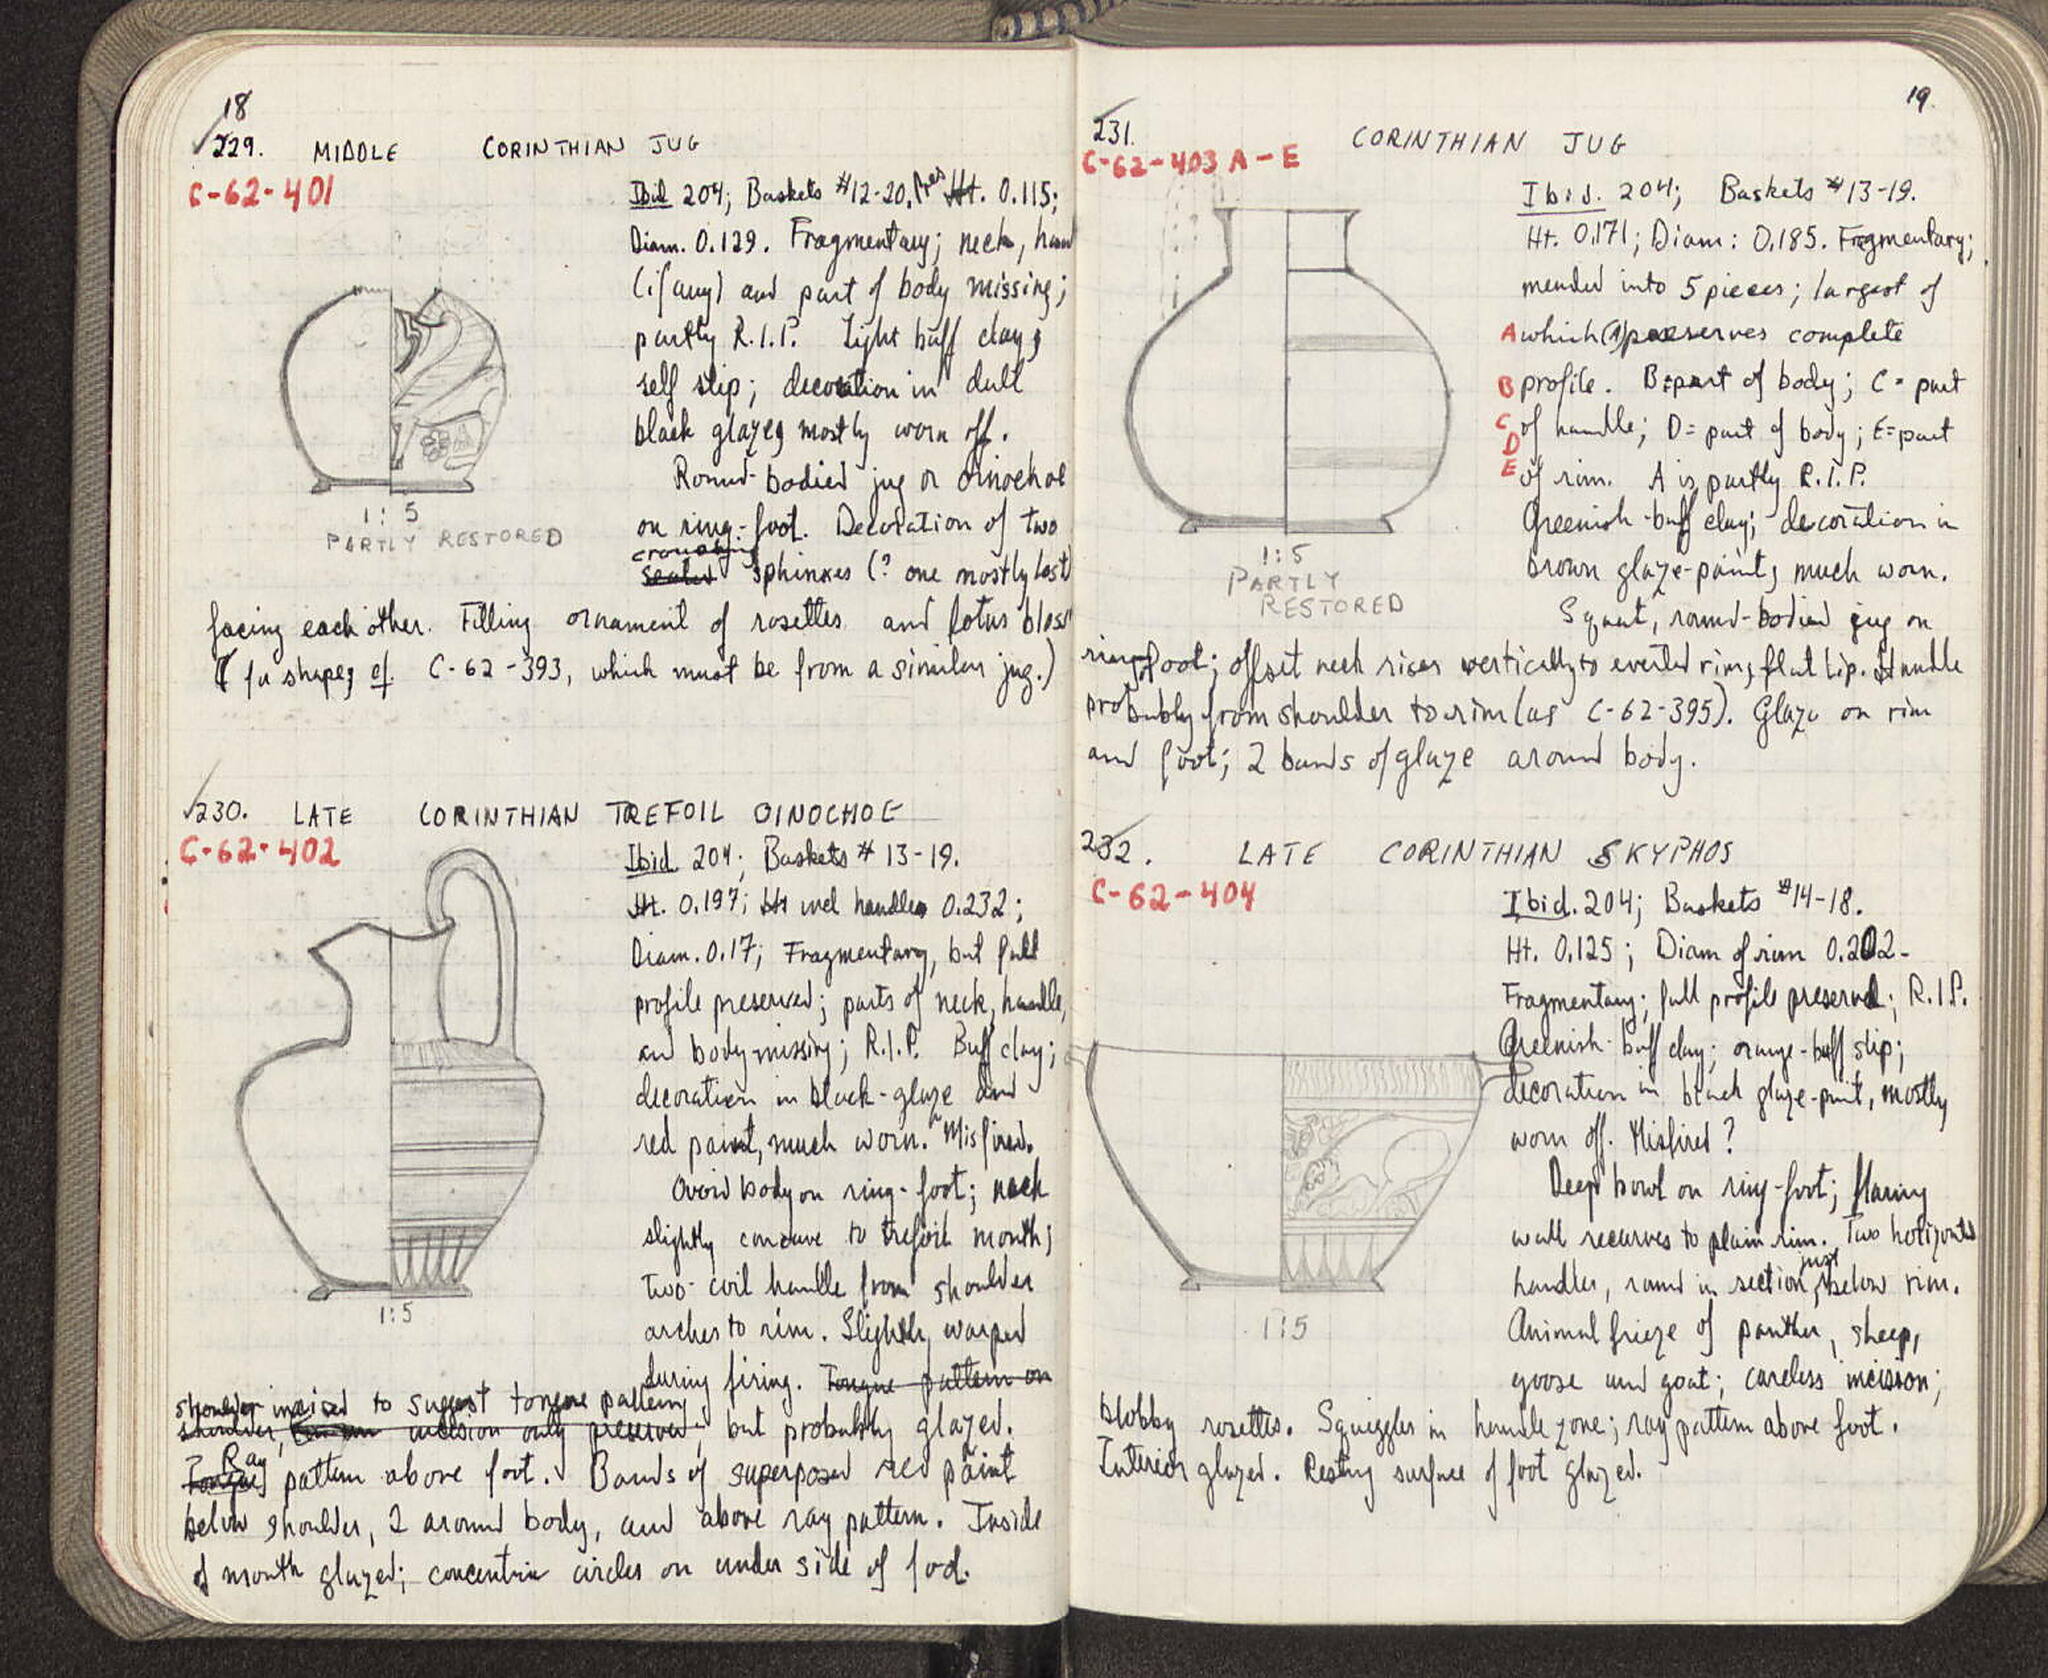 18
229. MIDDLE CORINTHIAN JUG
C-62-401
Ibid 204; Baskets #12-20. Pres Ht. 0.115;
Diam. 0.129. Fragmentary; neck, han
(if any) and part of body missing;
partly R.I.P. Light buff clay,
self slip; decoration in dull
black glaze, mostly worn off.
Round-bodied jug or oinochoe
on ring-foot. Decoration of two
crouching
seated sphinxes (? one mostly lost)
facing each other. Filling ornament of rosettes and lotus bloss
(for shape, cf. C-62-393, which must be from a similar jug.)
1:5
PARTLY RESTORED
230. LATE CORINTHIAN TREFOIL OINOCHOE
C-62-402
Ibid 204; Baskets # 13-19.
Ht. 0.197; Ht incl handle 0.232;
Diam. 0.17; Fragmentary, but full
profile preserved; parts of neck, handle,
and body missing; R.I.P. Buff clay;
decoration in black-glaze and
red paint, much worn. Misfired.
Ovoid body on ring-foot; neck
slightly concave to trefoil mouth;
two-coil handle from shoulder
arches to rim. Slightly warped
during firing. Tongue pattern on
shoulder incised to suggest tongue pattern,
shoulder, incision only preserved, but probably glazed.
Ray
Tongue pattern above foot. Bands of superposed red paint
below shoulder, 2 around body, and above ray pattern. Inside
of mouth glazed; concentric circles on under side of foot.
1:5
19.
231. CORINTHIAN JUG
C-62-403 A-E
Ibid. 204; Baskets #13-19.
Ht. 0.171; Diam: 0.185. Fragmentary;
mended into 5 pieces; largest of
A which (A) preserves complete
B profile. B=part of body; C= part
C of handle; D= part of body; E=part
D
E of rim. A is partly R.I.P.
Greenish-buff clay; decoration in
brown glaze-paint, much worn.
Squat, round-bodied jug on
ring foot; offset neck rises vertically to everted rim, flat lip. Handle
probably from shoulder to rim (as C-62-395). Glaze on rim
and foot; 2 bands of glaze around body.
1:5
PARTLY
RESTORED
232. LATE CORINTHIAN SKYPHOS
C-62-404
Ibid. 204; Baskets #14-18.
Ht. 0.125; Diam of rim 0.202-
Fragmentary; full profile preserved; R.I.P.
Greenish-buff clay; orange-buff slip;
decoration in black glaze-paint, mostly
worn off. Misfired?
Deep bowl on ring-foot; flaring
wall recurves to plain rim. Two horizontal
just
handles, round in section, below rim.
Animal frieze of panther, sheep,
goose and goat; careless incision;
blobby rosettes. Squiggles in handle zone; ray pattern above foot.
Interior glazed. Resting surface of foot glazed.
1:5